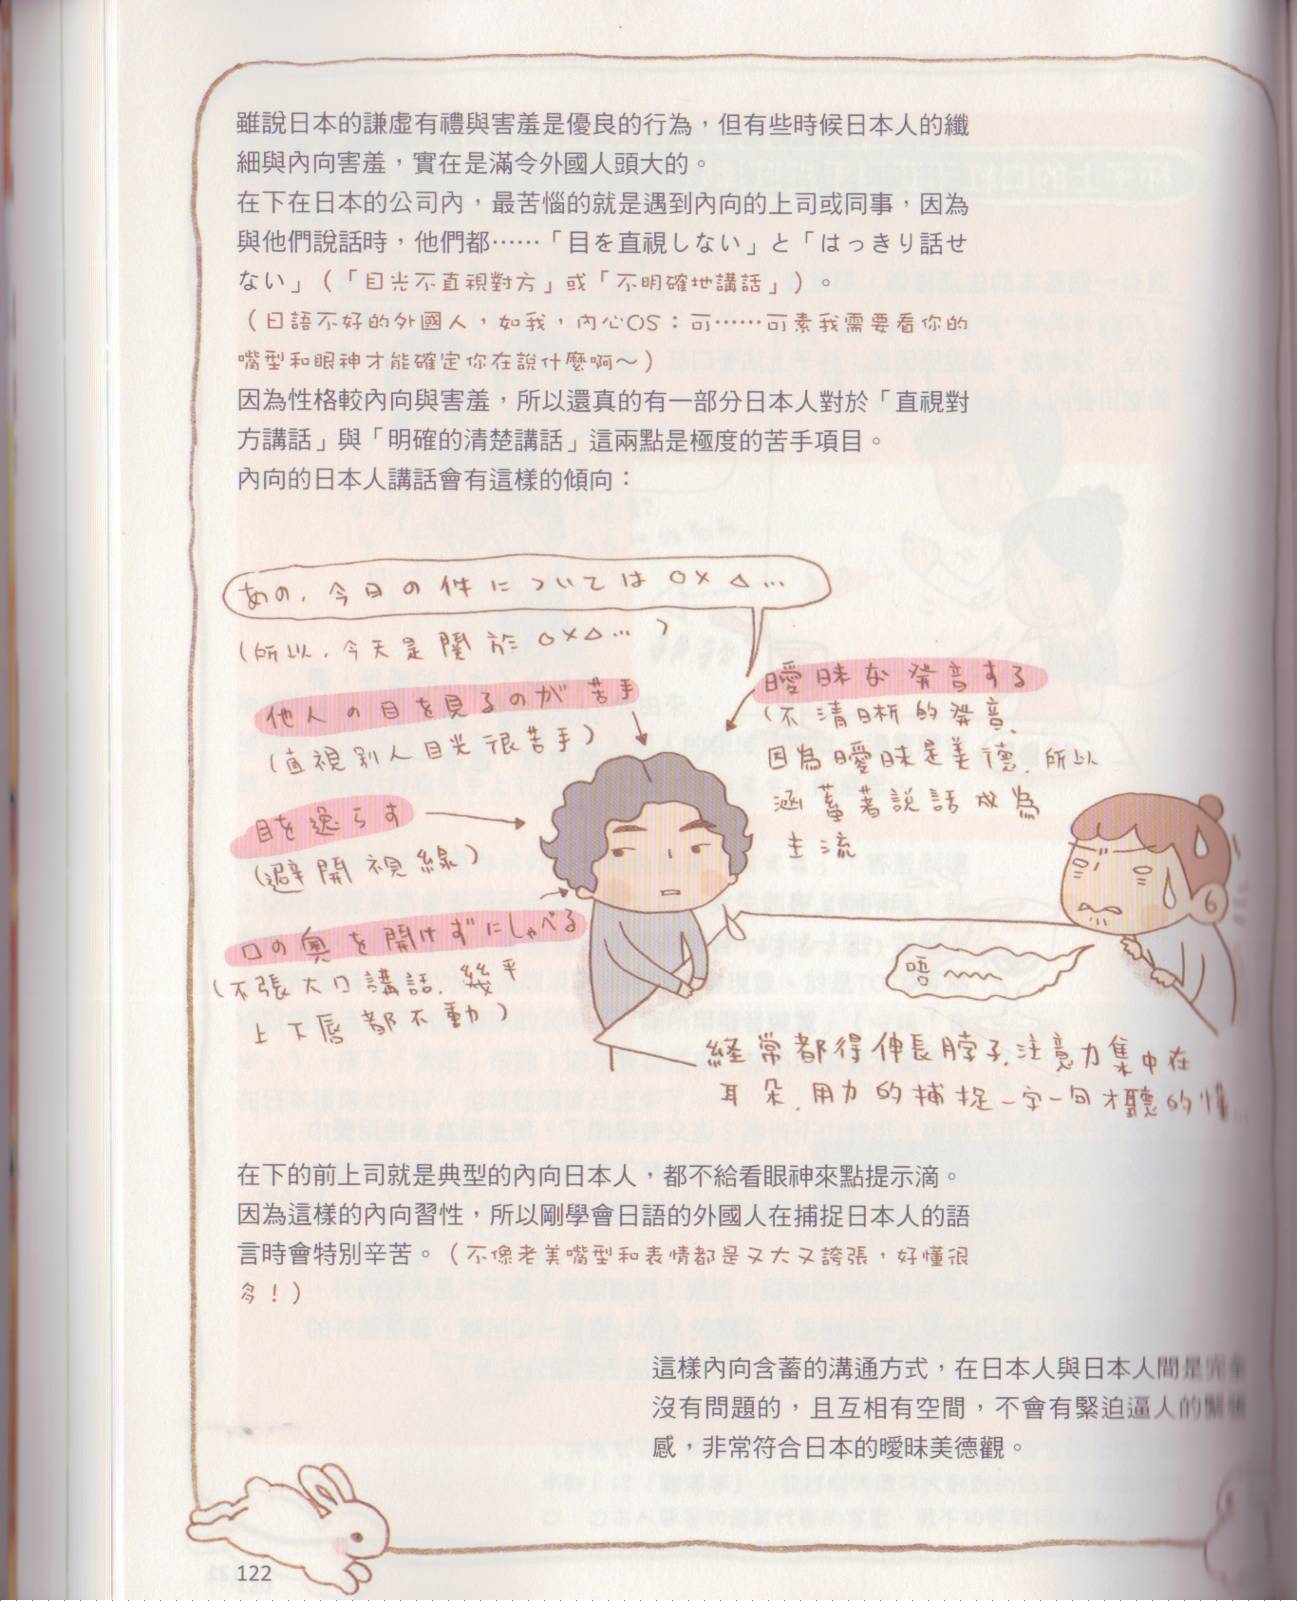 雖說日本的謙虛有禮與害羞是優良的行為，但有些時候日本人的纖
細與內向害羞，實在是滿令外國人頭大的。
在下在日本的公司內，最苦惱的就是遇到內向的上司或同事，因為
與他們說話時，他們都……「目を直視しない」と「はっきり話せ
ない」（「目光不直視對方」或「不明確地講話」）。
（日語不好的外國人，如我，內心OS：可……可素我需要看你的
嘴型和眼神才能確定你在說什麼啊～）
因為性格較內向與害羞，所以還真的有一部分日本人對於「直視對
方講話」與「明確的清楚講話」這兩點是極度的苦手項目。
內向的日本人講話會有這樣的傾向：
あの、今日の件については○×△…
（所以，今天是關於○×△…）
他人の目を見るのが苦手
（直視別人目光很苦手）
曖昧な発音する
（不清晰的發音，
因為曖昧是美德，所以
涵蓄著說話成為
主流
目を逸らす
（避開視線）
口の奧を開けずにしゃべる
（不張大口講話，幾乎
上下唇都不動）
唔～～
経常都得伸長脖子，注意力集中在
耳朵，用力的捕捉一字一句才聽的懂…
在下的前上司就是典型的內向日本人，都不給看眼神來點提示滴。
因為這樣的內向習性，所以剛學會日語的外國人在捕捉日本人的語
言時會特別辛苦。（不像老美嘴型和表情都是又大又誇張，好懂很
多！）
這樣內向含蓄的溝通方式，在日本人與日本人間是完全
沒有問題的，且互相有空間，不會有緊迫逼人的
感，非常符合日本的曖昧美德觀。
122